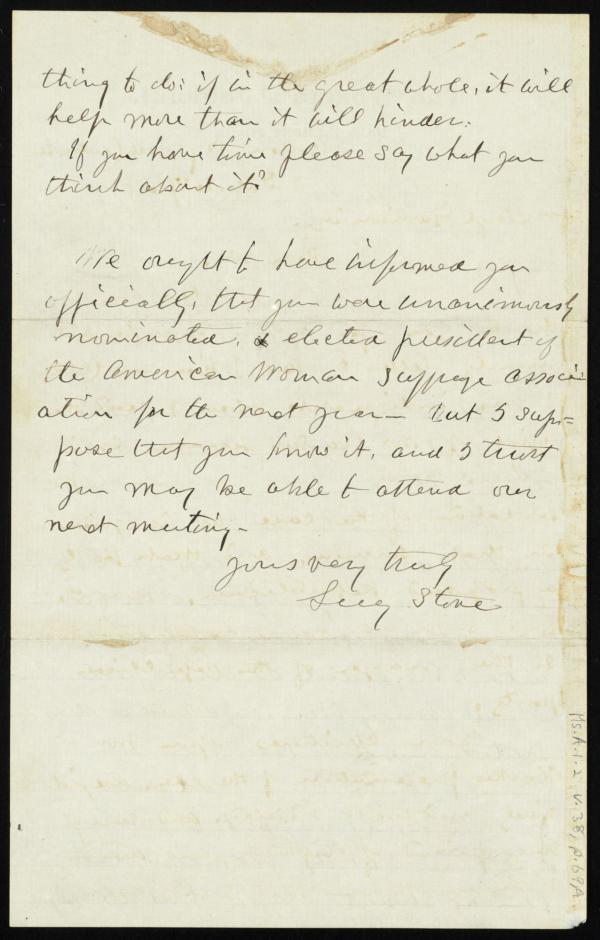 thing to do: if in the great whole, it will
help more than it will hinder.
If you have time please say what you
think about it?
We ought to have informed you
officially, that you were unanimously
nominated, & elected president of
the American Woman Suffrage associ-
ation for the next year— but I sup=
pose that you know it, and I trust
you may be able to attend our
next meeting—
yours very truly
Lucy Stone
Ms.A.1.2 v.38, p.69A